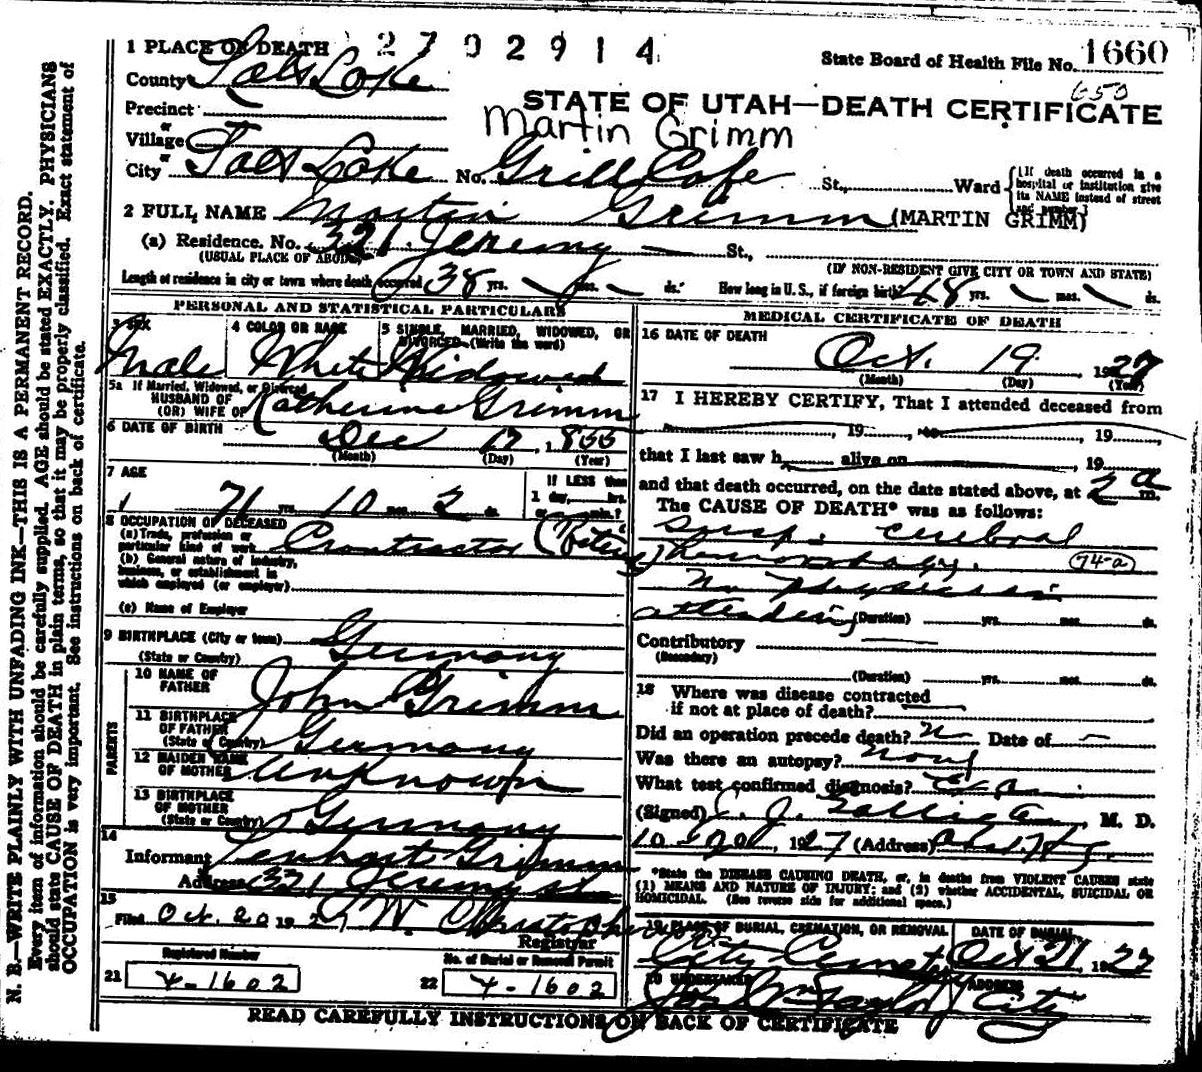 1 PLACE OF DEATH
2702914
State Board of Health File No. 1660
County Salt Lake
650
STATE OF UTAH—DEATH CERTIFICATE
Precinct
Martin Grimm
Village
City Salt Lake No. Grill Cafe St., Ward
(If death occurred in a hospital or institution give its NAME instead of street and number.)
2 FULL NAME Martin Grimm (MARTIN GRIMM)
(a) Residence. No. 321 Jeremy St.,
(USUAL PLACE OF ABODE) (IF NON-RESIDENT GIVE CITY OR TOWN AND STATE)
Length of residence in city or town where death occurred 38 yrs. mos. ds. How long in U. S., if foreign birth? 48 yrs. mos. ds.
PERSONAL AND STATISTICAL PARTICULARS
3 SEX 4 COLOR OR RACE 5 SINGLE, MARRIED, WIDOWED, OR DIVORCED (Write the word)
Male White Widowed
5a If Married, Widowed, or Divorced
HUSBAND OF
(OR) WIFE OF Katherine Grimm
6 DATE OF BIRTH Dec 17, 1855
(Month) (Day) (Year)
7 AGE
71 yrs. 10 mos. 2 ds.
IF LESS than
1 day, hrs.
or min.?
8 OCCUPATION OF DECEASED
(a) Trade, profession or particular kind of work Contractor
(b) General nature of industry, business, or establishment in which employed (or employer)
(c) Name of Employer
9 BIRTHPLACE (City or town) Germany
(State or Country)
PARENTS
10 NAME OF FATHER John Grimm
11 BIRTHPLACE OF FATHER (State or Country) Germany
12 MAIDEN NAME OF MOTHER Unknown
13 BIRTHPLACE OF MOTHER (State or Country) Germany
14
Informant Grimm
Address 321 Jeremy st
15
Filed Oct. 20 192 Registrar
Registered Number
21 4-1602
No. of Burial or Removal Permit
22 4-1602
MEDICAL CERTIFICATE OF DEATH
16 DATE OF DEATH
Oct. 19 1927
(Month) (Day) (Year)
17 I HEREBY CERTIFY, That I attended deceased from
, 19 , to , 19
that I last saw h alive on , 19
and that death occurred, on the date stated above, at 2 a m.
The CAUSE OF DEATH* was as follows:
susp. cerebral
hemorrhage. 74-a
No physician
attending (Duration) yrs. mos. ds.
Contributory
(Secondary)
(Duration) yrs. mos. ds.
18 Where was disease contracted
if not at place of death?
Did an operation precede death? No Date of
Was there an autopsy? None
What test confirmed diagnosis?
(Signed) J. , M. D.
10-20, 1927 (Address)
*State the DISEASE CAUSING DEATH, or, in deaths from VIOLENT CAUSES state
(1) MEANS AND NATURE OF INJURY; and (2) whether ACCIDENTAL, SUICIDAL OR
HOMICIDAL. (See reverse side for additional space.)
19 PLACE OF BURIAL, CREMATION, OR REMOVAL DATE OF BURIAL
City Cemetery Oct 21, 1927
20 UNDERTAKER ADDRESS
Jos Wm Taylor City
READ CAREFULLY INSTRUCTIONS ON BACK OF CERTIFICATE
N. B.—WRITE PLAINLY WITH UNFADING INK—THIS IS A PERMANENT RECORD.
Every item of information should be carefully supplied. AGE should be stated EXACTLY. PHYSICIANS
should state CAUSE OF DEATH in plain terms, so that it may be properly classified. Exact statement of
OCCUPATION is very important. See instructions on back of certificate.